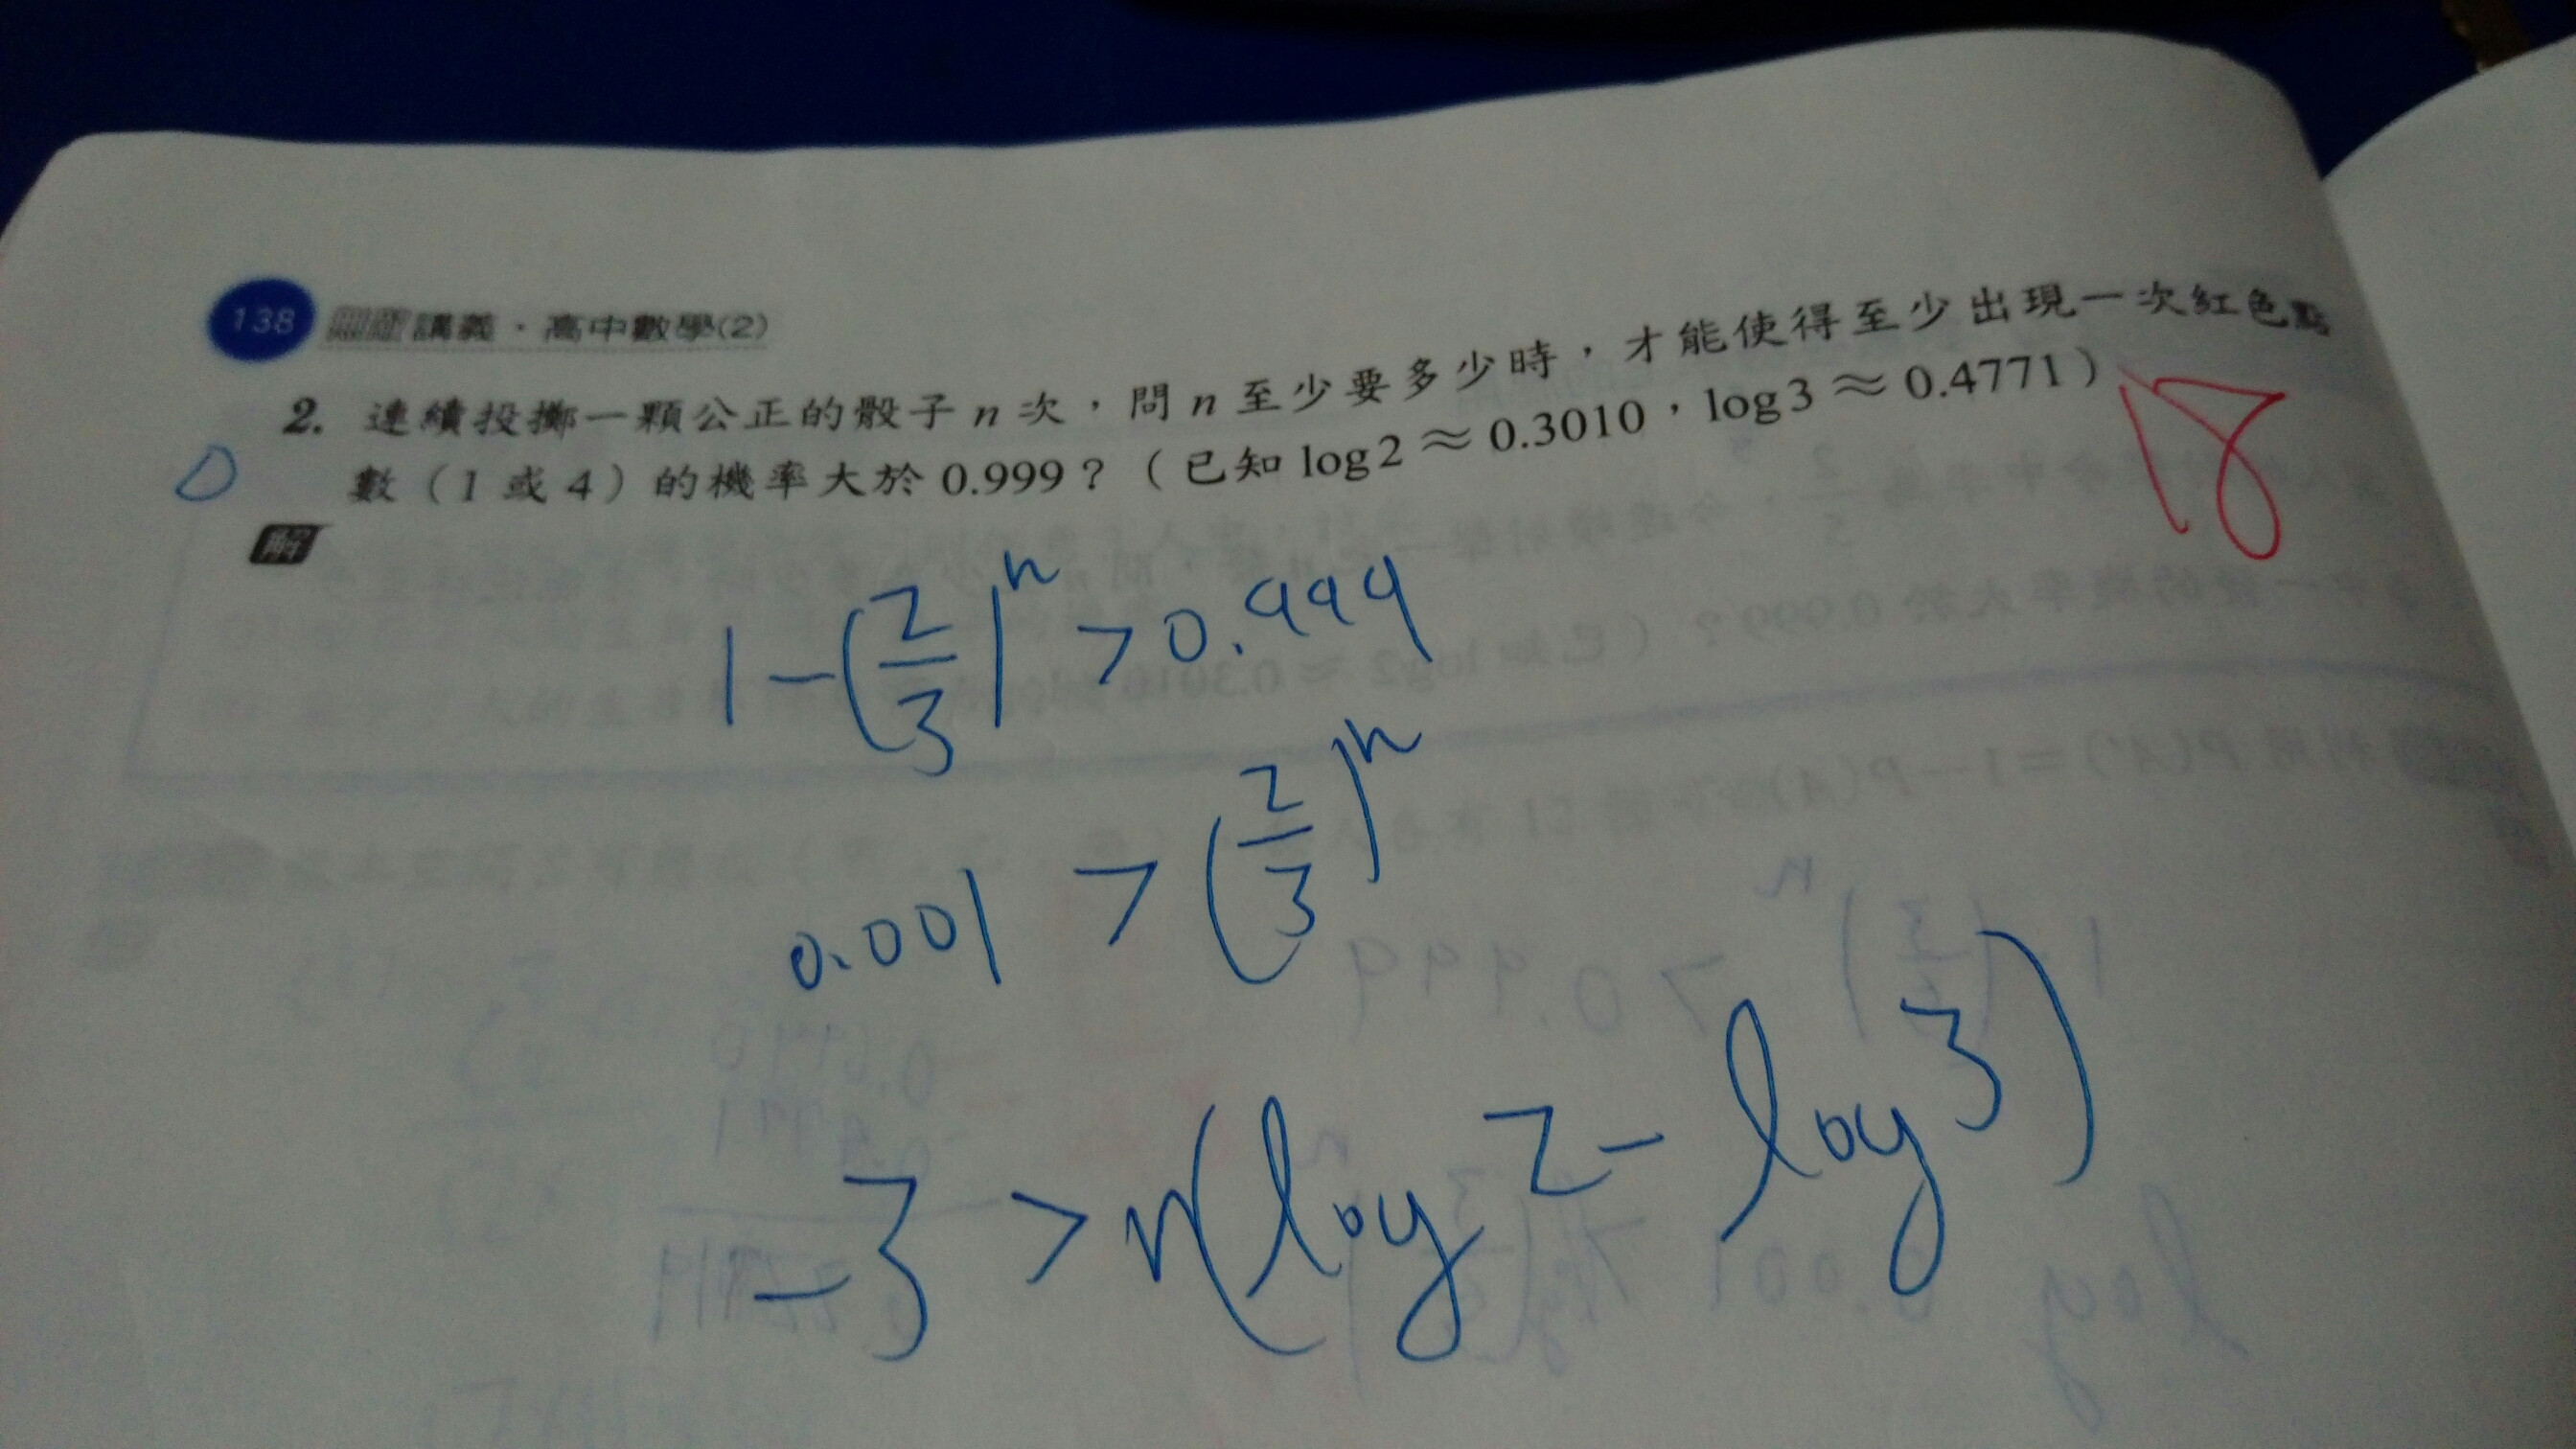 138 講義・高中數學(2)
2. 連續投擲一顆公正的骰子 n 次，問 n 至少要多少時，才能使得至少出現一次紅色點
數（1 或 4）的機率大於 0.999？（已知 log2 ≈ 0.3010，log3 ≈ 0.4771）
18
解
1-(2/3)^n > 0.999
0.001 > (2/3)^n
-3 > n(log2 - log3)